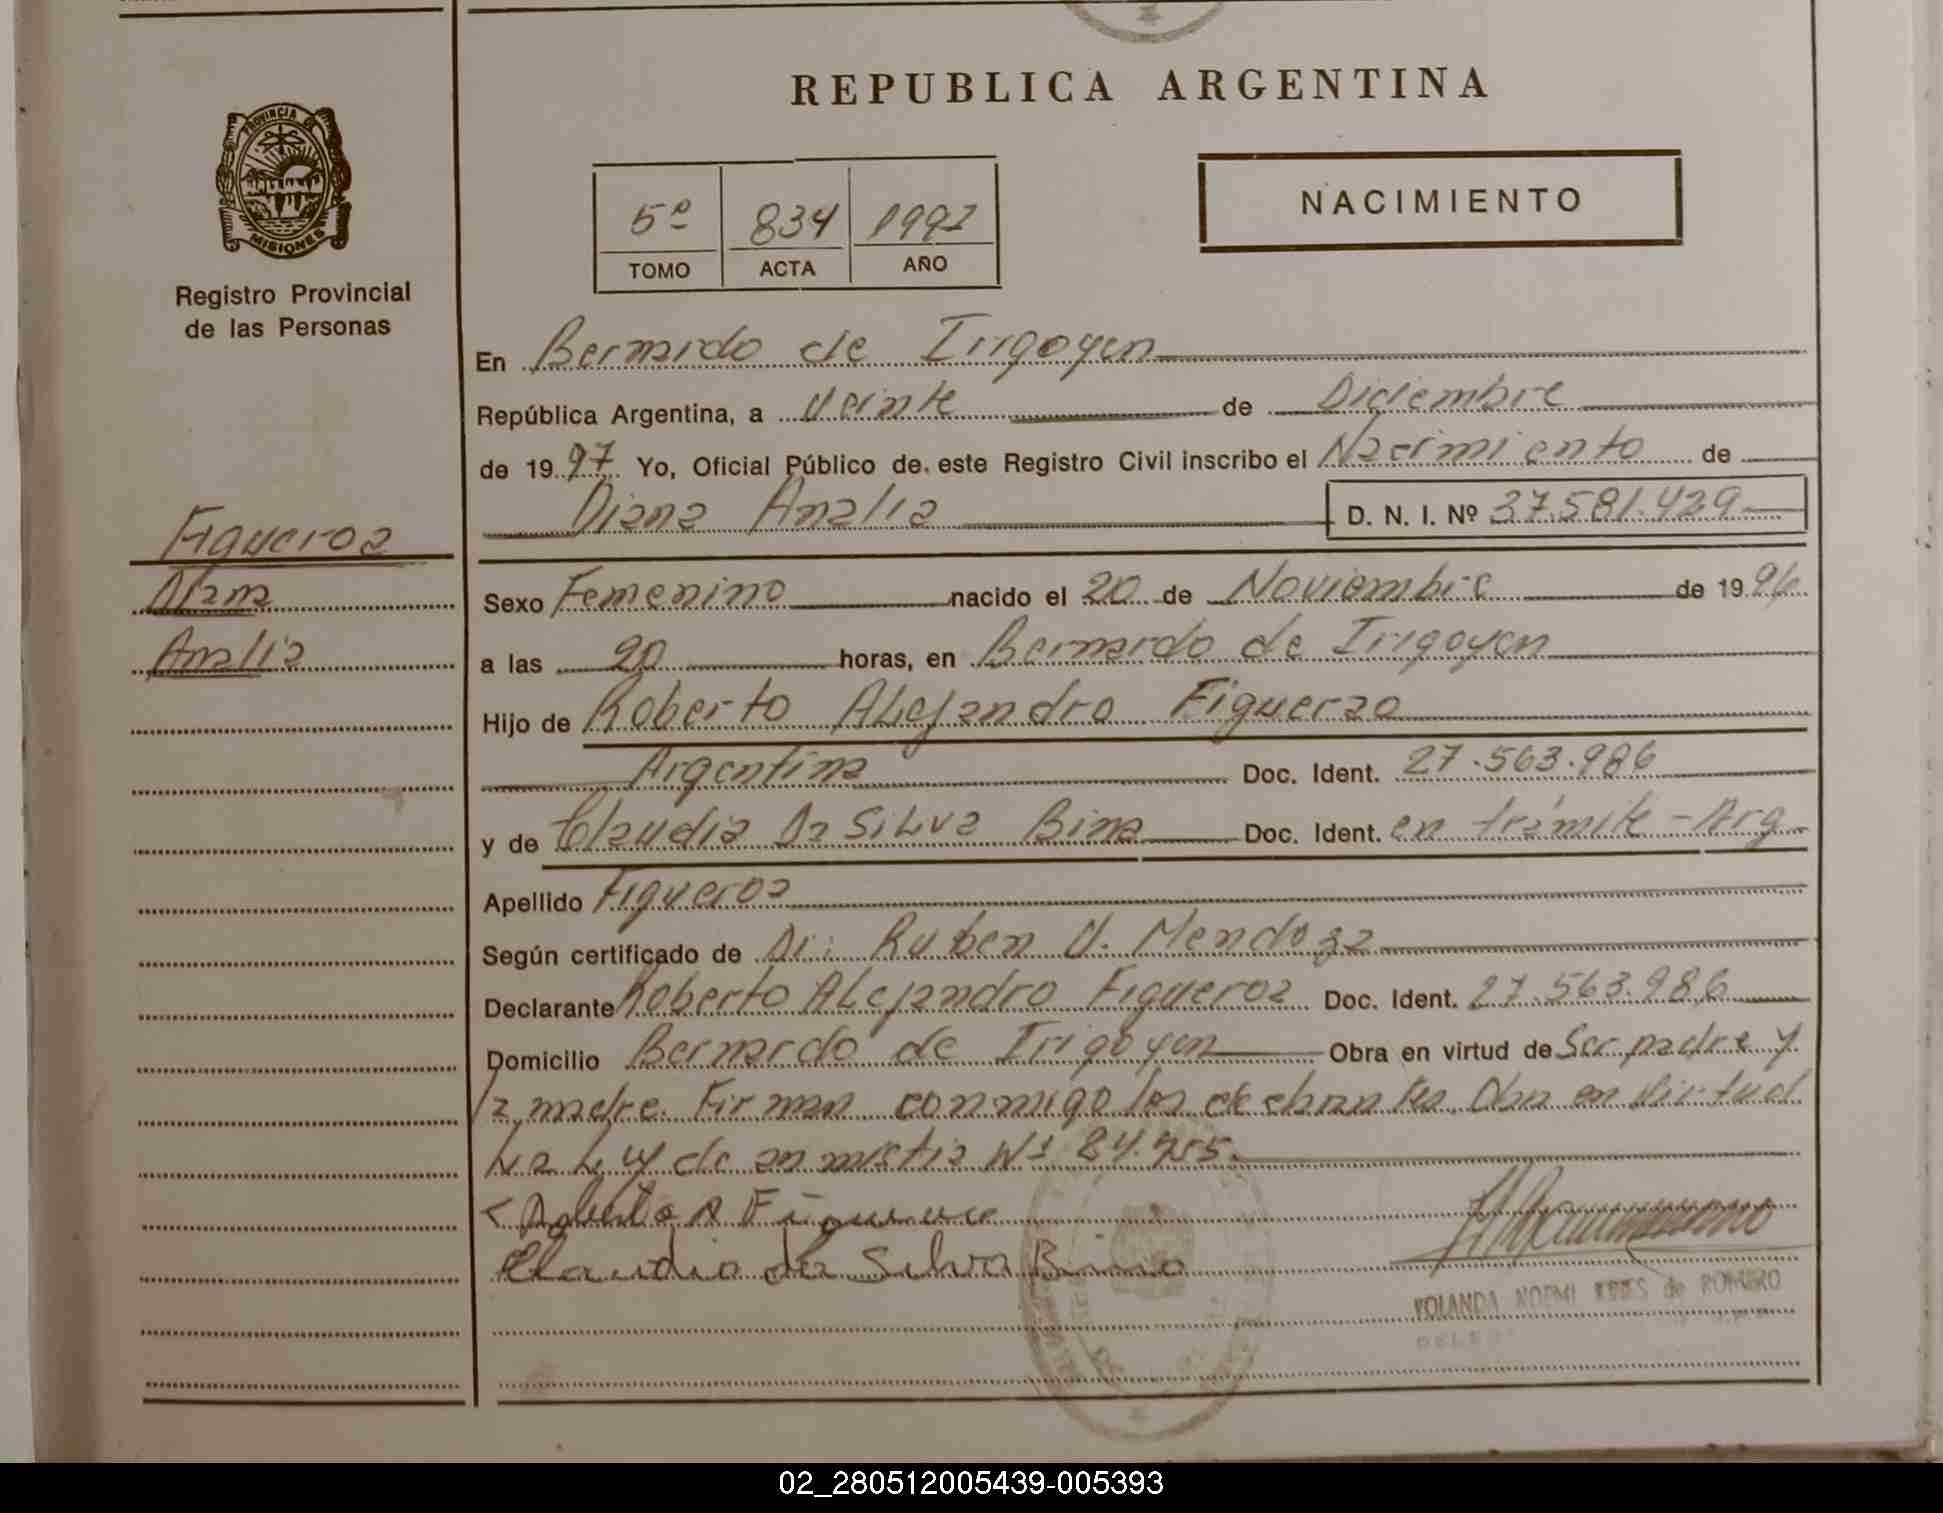 REPUBLICA ARGENTINA
PROVINCIA DE
MISIONES
Registro Provincial
de las Personas
5º 834 1997
TOMO ACTA AÑO
NACIMIENTO
En Bernardo de Irigoyen
República Argentina, a Veinte de Diciembre
de 1997 Yo, Oficial Público de este Registro Civil inscribo el Nacimiento de
Diana Analia D. N. I. Nº 37.581.429
Figueroa
Diana
Analia
Sexo Femenino nacido el 20 de Noviembre de 1996
a las 20 horas, en Bernardo de Irigoyen
Hijo de Roberto Alejandro Figuerao
Argentina Doc. Ident. 27.563.986
y de Claudia Da Silva Bina Doc. Ident. en trámite - Arg
Apellido Figueroa
Según certificado de Dr: Ruben V. Mendoza
Declarante Roberto Alejandro Figueroa Doc. Ident. 27.563.986
Domicilio Bernardo de Irigoyen Obra en virtud de Ser padre y
la madre. Firman conmigo los declarantes. Obra en virtud
La Ley de anmistia Nº 24.755
Roberto A Figueroa
Claudia da Silva Bina
YOLANDA NOEMI de ROMERO
02_280512005439-005393